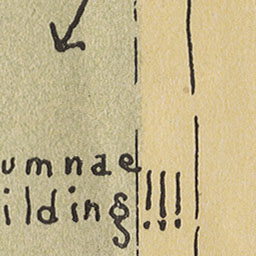 umnae
ilding!!!